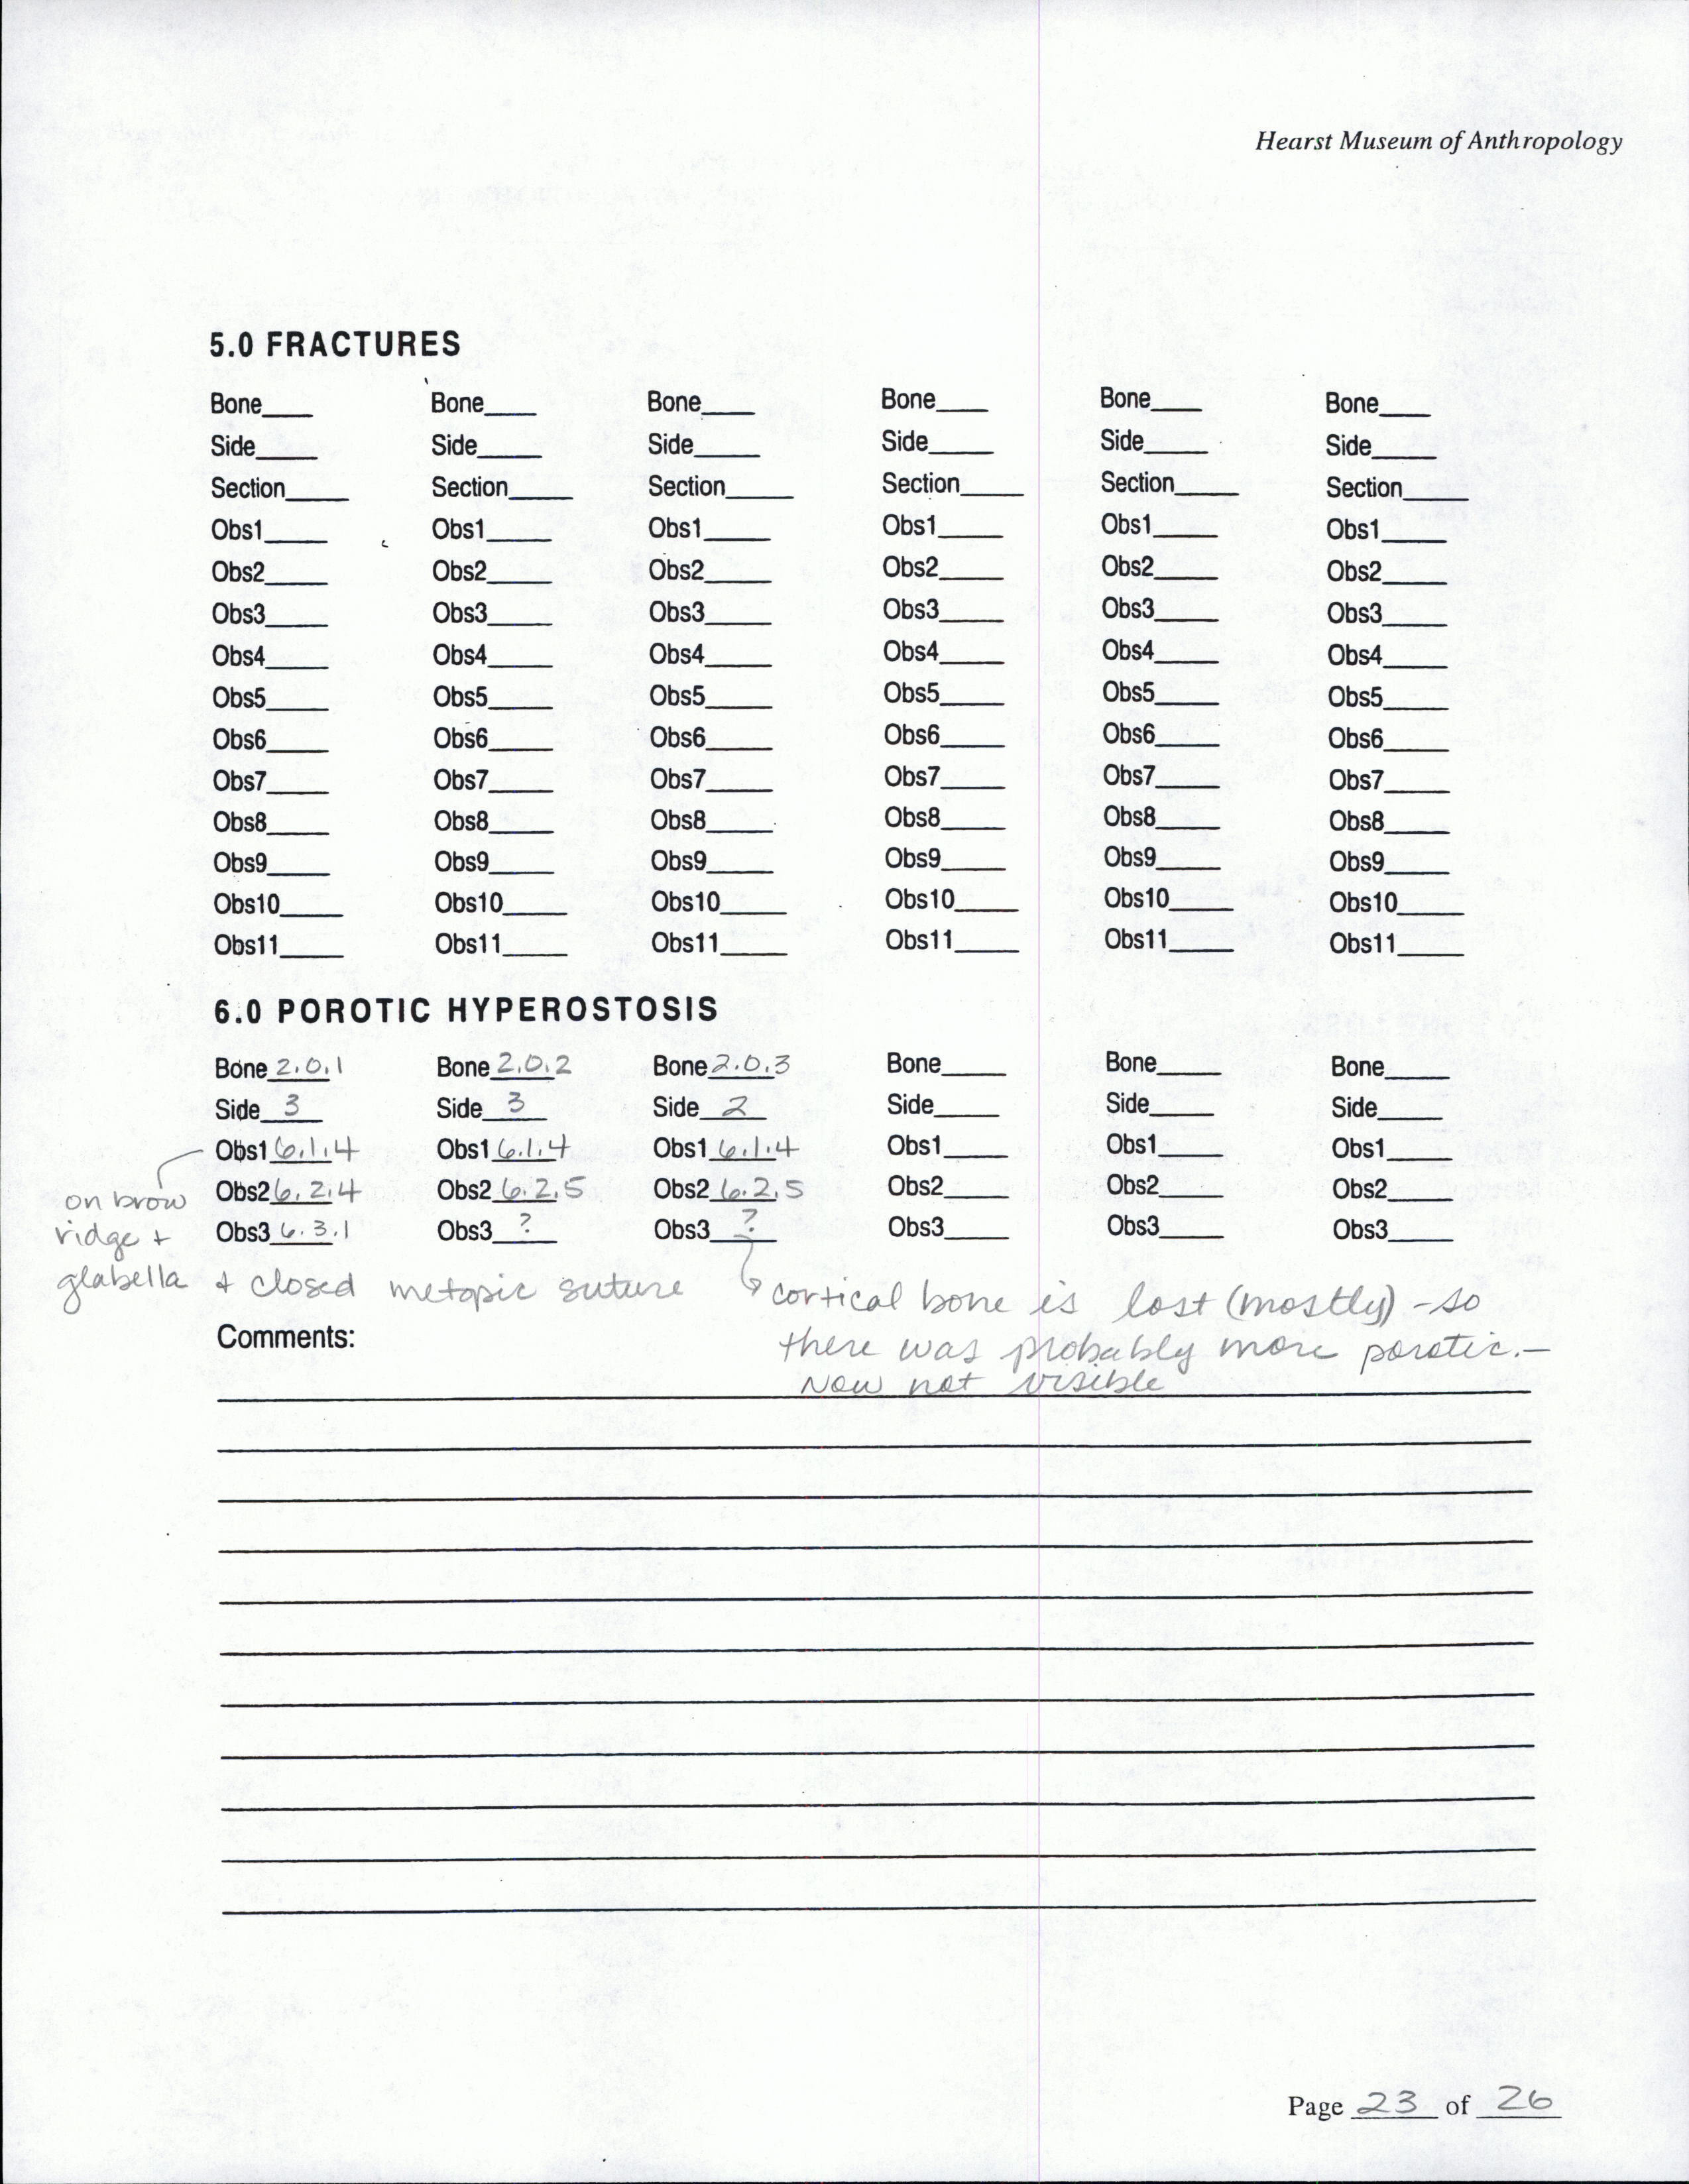 Hearst Museum of Anthropology
5.0 FRACTURES
Bone____ Bone____ Bone____ Bone____ Bone____ Bone____
Side____ Side____ Side____ Side____ Side____ Side____
Section____ Section____ Section____ Section____ Section____ Section____
Obs1____ Obs1____ Obs1____ Obs1____ Obs1____ Obs1____
Obs2____ Obs2____ Obs2____ Obs2____ Obs2____ Obs2____
Obs3____ Obs3____ Obs3____ Obs3____ Obs3____ Obs3____
Obs4____ Obs4____ Obs4____ Obs4____ Obs4____ Obs4____
Obs5____ Obs5____ Obs5____ Obs5____ Obs5____ Obs5____
Obs6____ Obs6____ Obs6____ Obs6____ Obs6____ Obs6____
Obs7____ Obs7____ Obs7____ Obs7____ Obs7____ Obs7____
Obs8____ Obs8____ Obs8____ Obs8____ Obs8____ Obs8____
Obs9____ Obs9____ Obs9____ Obs9____ Obs9____ Obs9____
Obs10____ Obs10____ Obs10____ Obs10____ Obs10____ Obs10____
Obs11____ Obs11____ Obs11____ Obs11____ Obs11____ Obs11____
6.0 POROTIC HYPEROSTOSIS
Bone 2.0.1 Bone 2.0.2 Bone 2.0.3 Bone____ Bone____ Bone____
Side 3 Side 3 Side 2 Side____ Side____ Side____
Obs1 6.1.4 Obs1 6.1.4 Obs1 6.1.4 Obs1____ Obs1____ Obs1____
Obs2 6.2.4 Obs2 6.2.5 Obs2 6.2.5 Obs2____ Obs2____ Obs2____
Obs3 6.3.1 Obs3 ? Obs3 ? Obs3____ Obs3____ Obs3____
on brow
ridge +
glabella + closed metopic suture
cortical bone is lost (mostly) - so
there was probably more porotic. -
Now not visible
Comments:
Page 23 of 26